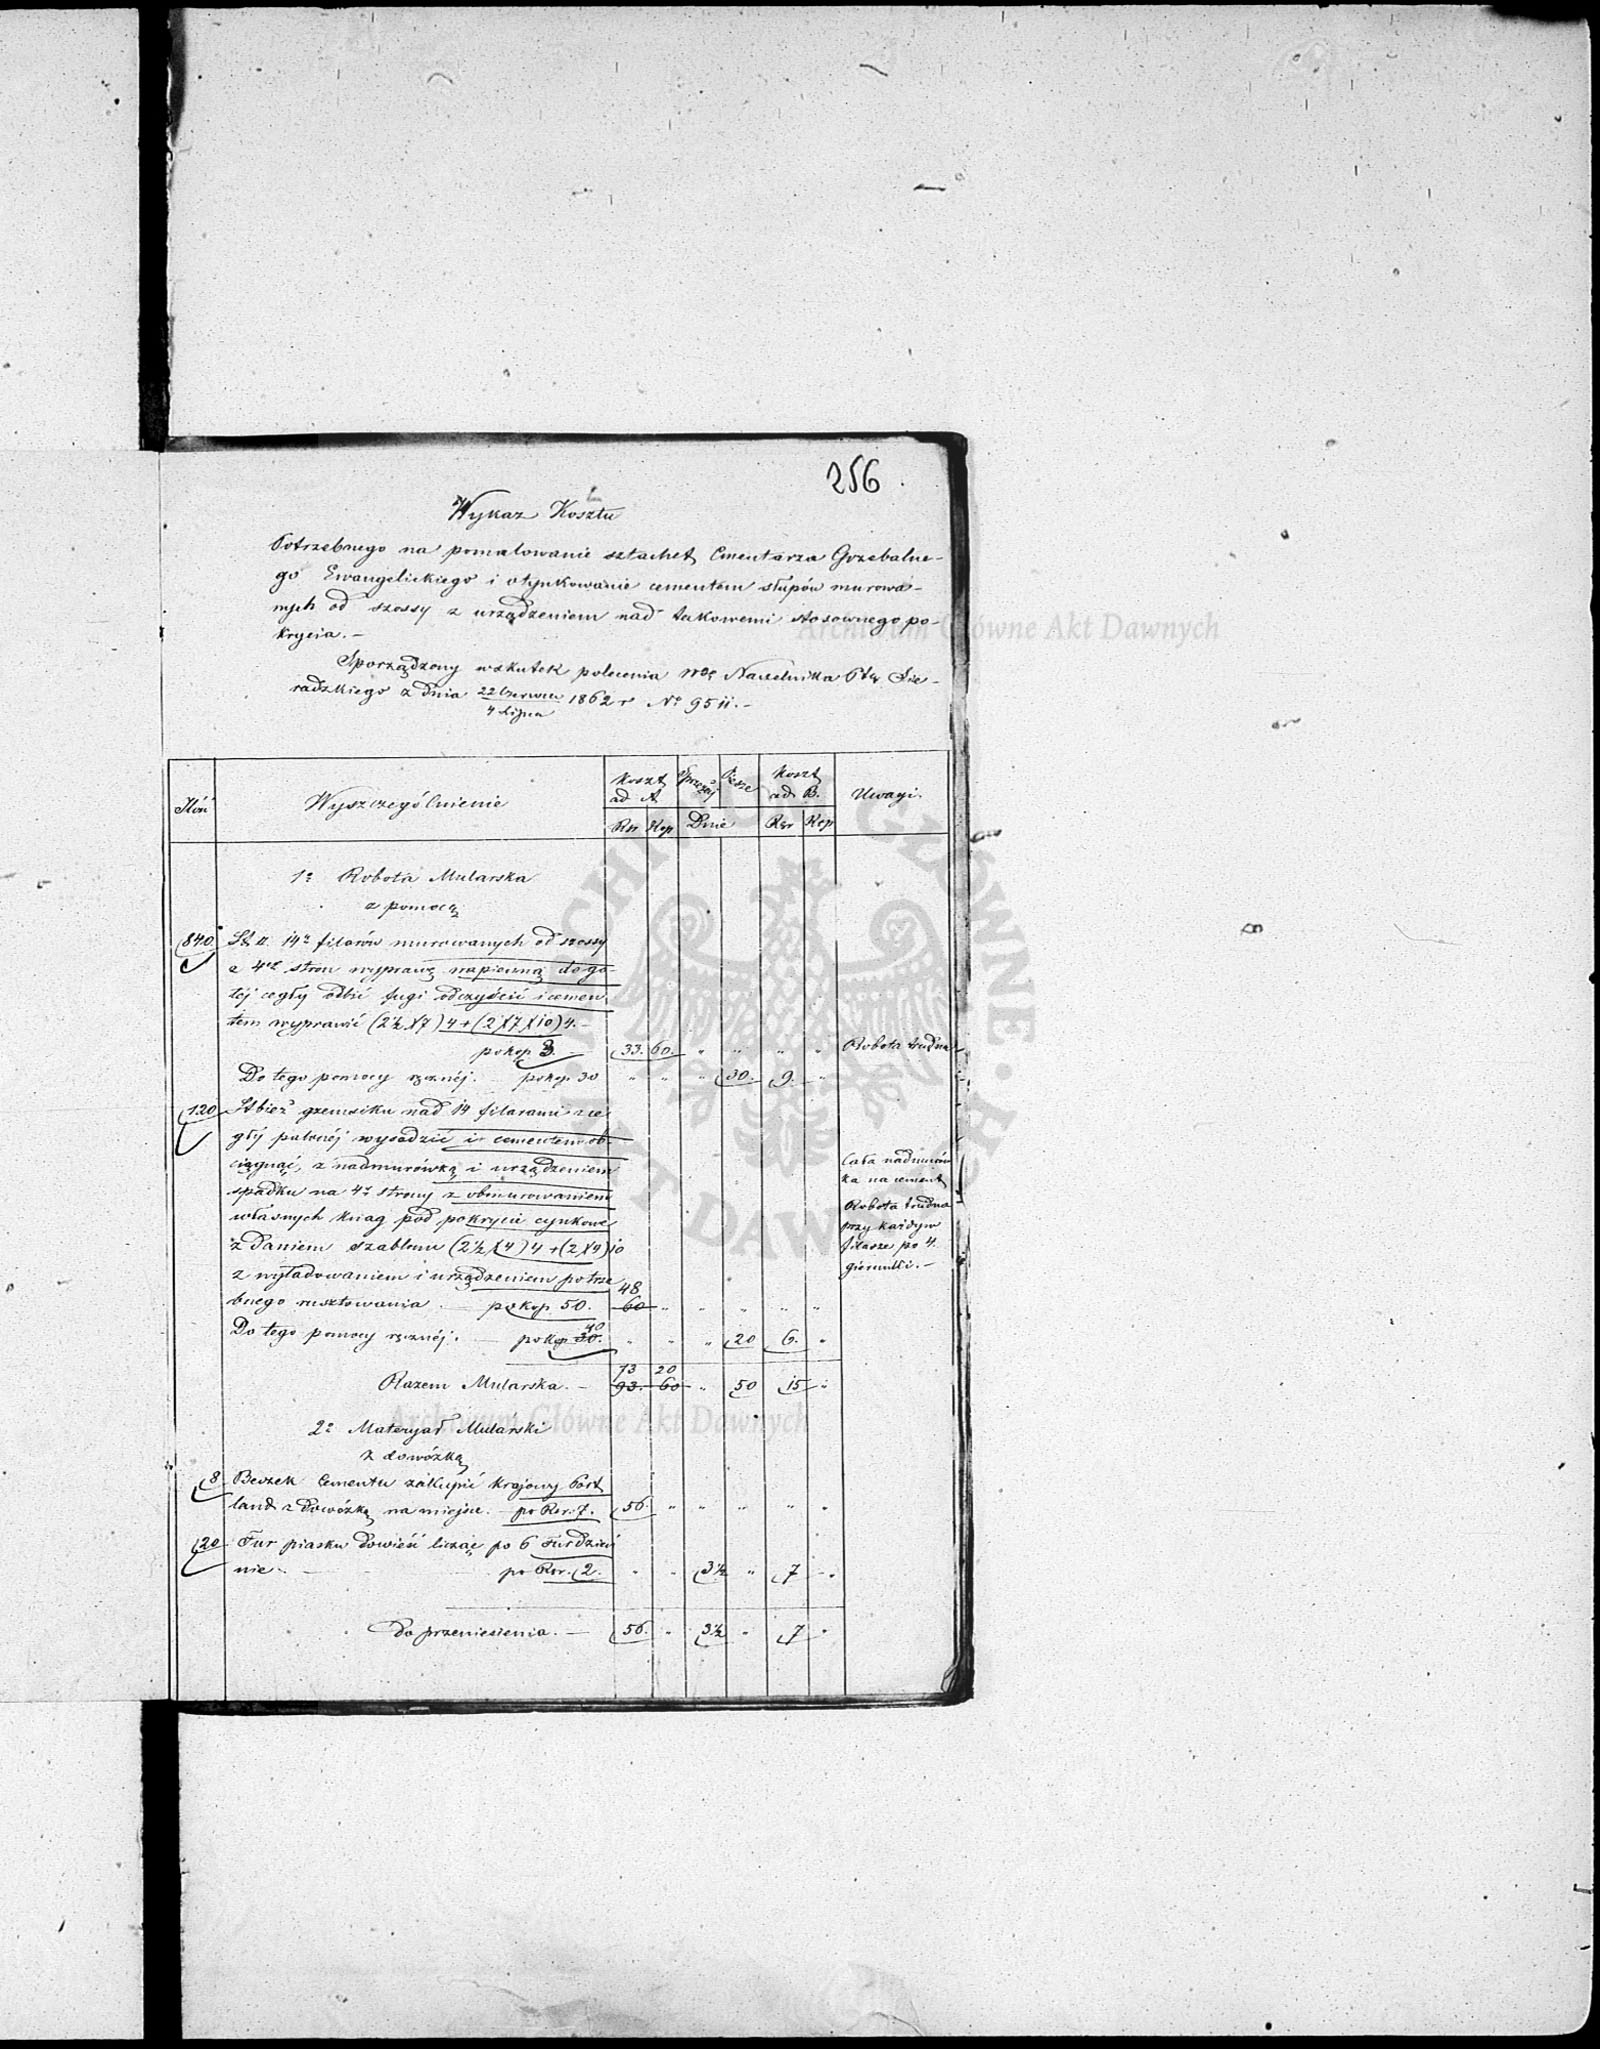 256.
Wykaz Kosztu
Potrzebnego na pomalowanie sztachet Cmentarza Grzebalne-
go Ewangelickiego i otynkowanie cementem słupów murowa-
nych od szossy z urządzeniem nad takowemi stosownego po-
krycia. -
Sporządzony wskutek polecenia Naczelnika Ptu Sie-
radzkiego z dnia 22 Czerwca / 4 Lipca 1862 r No 9511. -
Ilość Wyszczególnienie Koszt ad A. Sprzężaj Piesze Koszt ad B. Uwagi.
Rsr Kop Dnie Rsr Kop
1o Robota Mularska
z pomocą
840 14u filarów murowanych od szossy
z 4ch stron wyprawę wapienną do go-
łéj cegły odbić fugi odczyścić i cemen
tem wyprawić (2½ X 7) 4 + (2 X 7 X 10) 4. -
po kop 3. - 33. 60. " " " " Robota trudna
Do tego pomocy ręcznéj. - po kop. 30 " " " 30. 9. "
120 St bież gzemsiku nad 14 filarami z ce
gły palonéj wysadzić i cementem ob-
ciągnąć, z nadmurówką i urządzeniem
spadku na 4y strony z obmurowaniem
własnych knag pod pokrycie cynkowe
z daniem szablonu (2½ X 4) 4 + (2 X 4) 10
z wyładowaniem i urządzeniem potrze
bnego rusztowania. - po kop. 50. 48 60 " " " " "
Cała nadmurów
ka na cement
Robota trudna
przy każdym
filarze po 4.
gierunki. -
Do tego pomocy ręcznéj. - po kop. 40 30. " " " 20 6. "
Razem Mularska. - 73 20 93. 60 " 50 15 "
2o Materyał Mularski
z dowózką
8 Beczek Cementu zakupić krajowy Port
land z dowózką na miejsce. - po Rsr. 7. 56. " " " " "
20 Fur piasku dowieść licząc po 6 Fur dzień
nie. - po Rsr. 2. " " 3½ " 7 "
Do przeniesienia. - 56. " 3½ " 7 "
Archiwum Główne Akt Dawnych
Archiwum Główne Akt Dawnych
ARCHIWUM GŁÓWNE AKT DAWNYCH